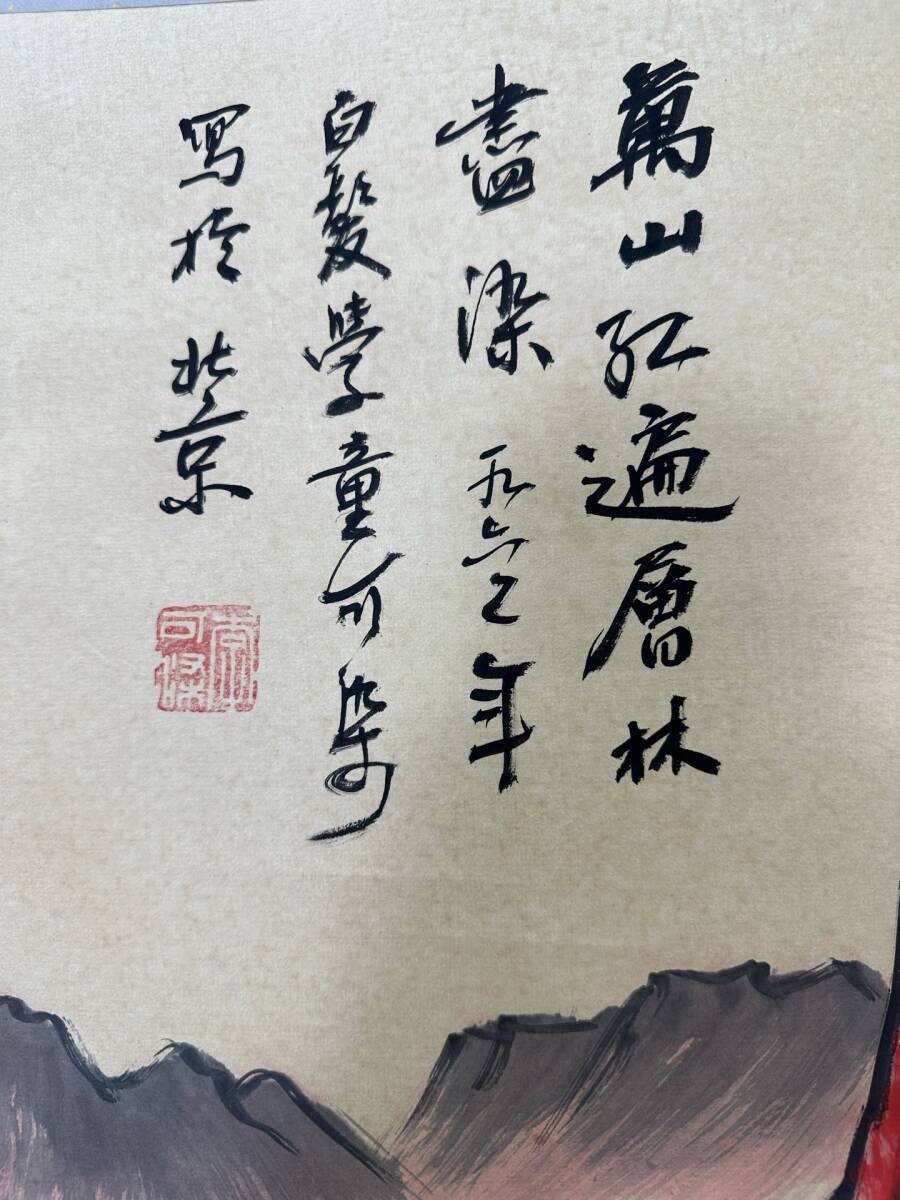 萬山红遍層林
盡染 一九六二年
白髮學童可染
寫於北京